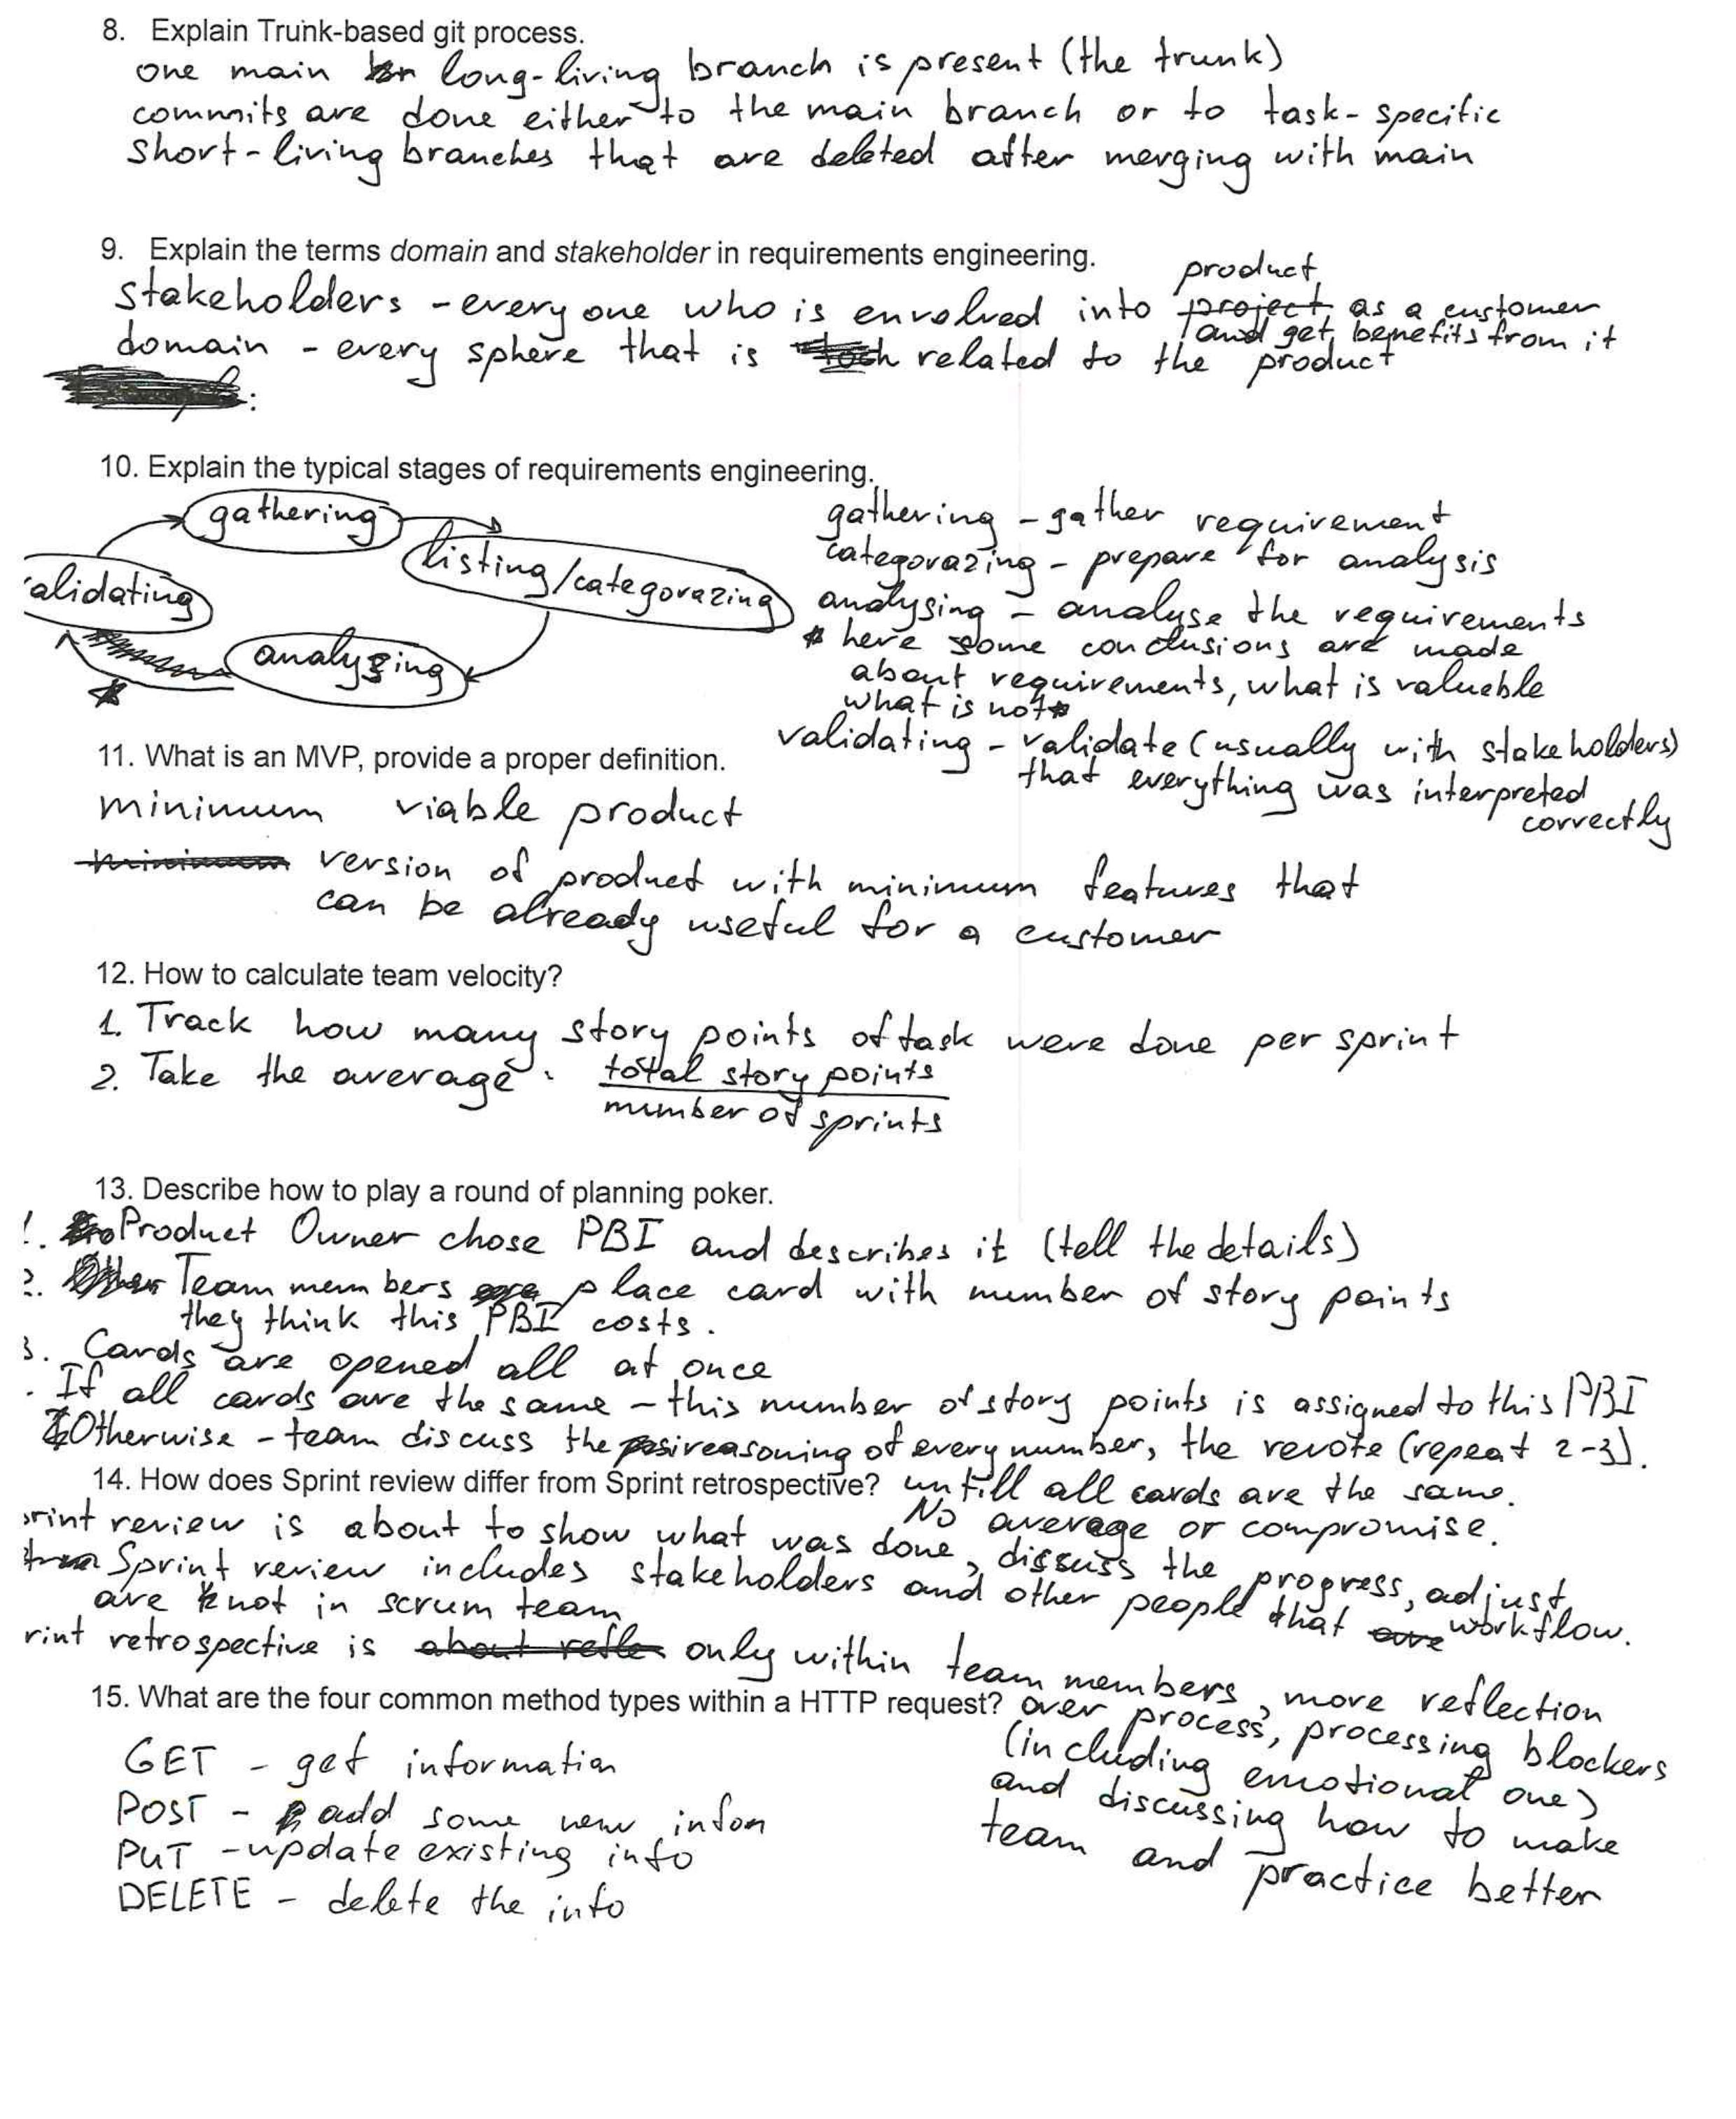 8. Explain Trunk-based git process.
one main long-living branch is present (the trunk)
commits are done either to the main branch or to task-specific
short-living branches that are deleted after merging with main
9. Explain the terms domain and stakeholder in requirements engineering.
product
stakeholders - everyone who is envolved into project as a customer
and get benefits from it
domain - every sphere that is related to the product
:
10. Explain the typical stages of requirements engineering.
gathering
listing/categorazing
alidating
analysing
gathering - gather requirement
categorazing - prepare for analysis
analysing - analyse the requirements
* here some conclusions are made
about requirements, what is valueble
what is not *
validating - validate (usually with stakeholders)
that everything was interpreted
correctly
11. What is an MVP, provide a proper definition.
minimum viable product
minimum version of product with minimum features that
can be already useful for a customer
12. How to calculate team velocity?
1. Track how many story points of task were done per sprint
2. Take the average: total story points
number of sprints
13. Describe how to play a round of planning poker.
1. Product Owner chose PBI and describes it (tell the details)
2. Team members place card with number of story points
they think this PBI costs.
3. Cards are opened all at once
. If all cards are the same - this number of story points is assigned to this PBI
Otherwise - team discuss the reasoning of every number, the revote (repeat 2-3).
untill all cards are the same.
No average or compromise.
14. How does Sprint review differ from Sprint retrospective?
print review is about to show what was done, discuss the progress, adjust
workflow.
Sprint review includes stakeholders and other people that are
are not in scrum team
rint retrospective is about refle only within team members, more reflection
over process, processing blockers
(including emotional one)
and discussing how to make
team and practice better
15. What are the four common method types within a HTTP request?
GET - get information
POST - add some new infom
PUT - update existing info
DELETE - delete the info